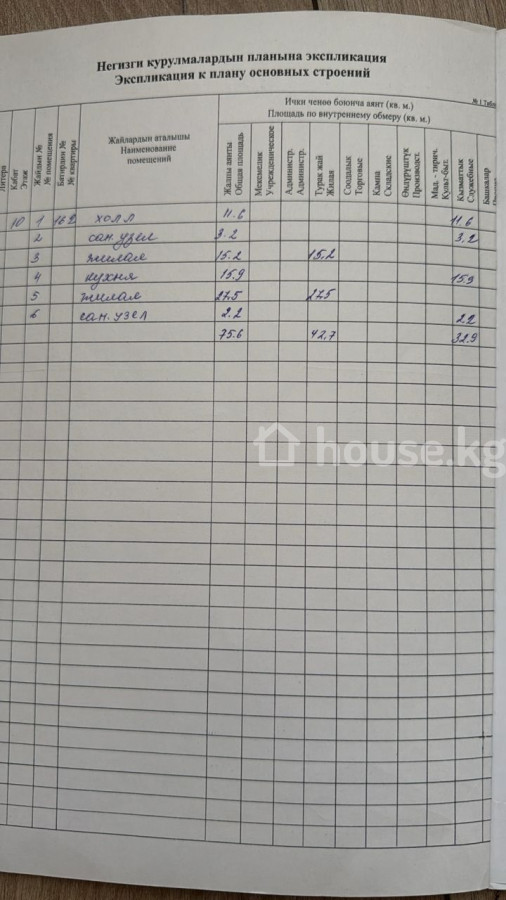 Негизги курулмалардын планына экспликация
Экспликация к плану основных строений
№ 1 Табл
Литери
Кабат
Этаж
Жайдын №
№ помещения
Батирдин №
№ квартиры
Жайлардын аталышы
Наименование
помещений
Ички ченөө боюнча аянт (кв. м.)
Площадь по внутреннему обмеру (кв. м.)
Жалпы аянты
Общая площадь
Мекемелик
Учрежденческие
Администр.
Администр.
Турак жай
Жилая
Соодалык
Торговые
Кампа
Складские
Өндүрүштүк
Производст.
Мад. - тирич.
Культ-быт.
Кызматтык
Служебные
Башкалар
10 1 162 холл 11.6 11.6
2 сан.узел 3.2 3.2
3 жилая 15.2 15.2
4 кухня 15.9 15.9
5 жилая 27.5 27.5
6 сан.узел 2.2 2.2
75.6 42.7 32.9
house.kg